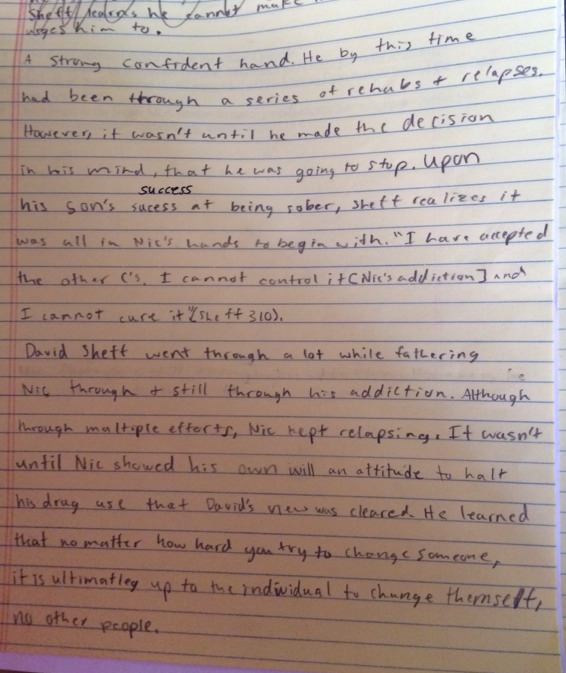 Sheff learns he cannot make
urges him to.
A strong confident hand. He by this time
had been through a series of rehabs + relapses.
However, it wasn't until he made the decision
in his mind, that he was going to stop. Upon
success
his son's sucess at being sober, Sheff realizes it
was all in Nic's hands to begin with. "I have accepted
the other C's. I cannot control it [Nic's addiction] and
I cannot cure it" (Sheff 310).
David Sheff went through a lot while fathering
Nic through + still through his addiction. Although
through multiple efforts, Nic kept relapsing. It wasn't
until Nic showed his own will an attitude to halt
his drug use that David's view was cleared. He learned
that no matter how hard you try to change someone,
it is ultimatley up to the individual to change themself,
no other people.